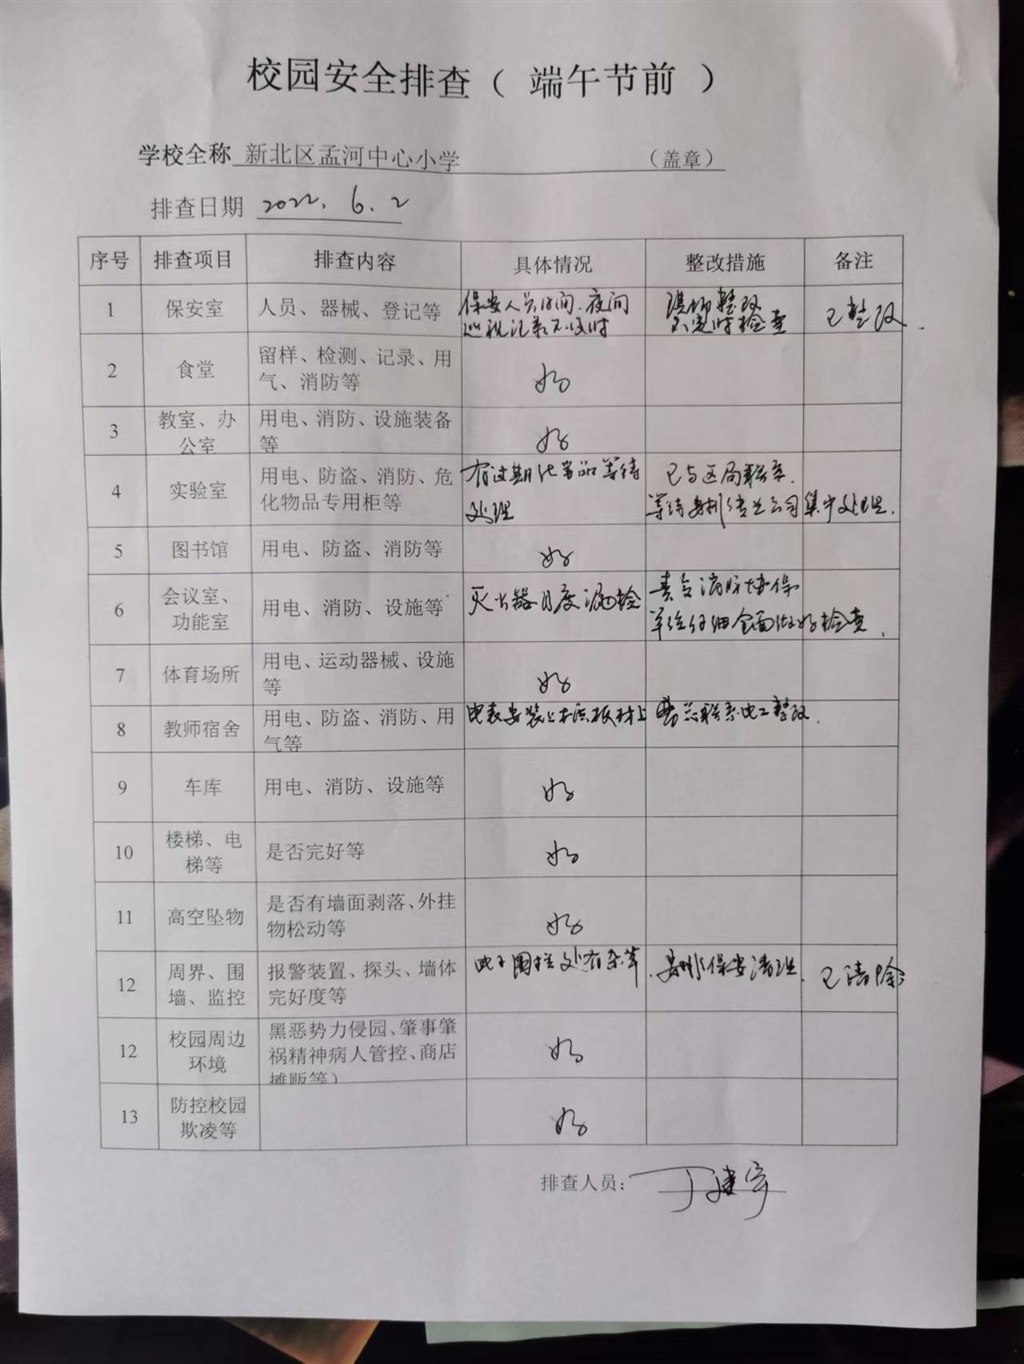 校园安全排查（ 端午节前 ）
学校全称 新北区孟河中心小学 （盖章）
排查日期 2022. 6. 2
序号 排查项目 排查内容 具体情况 整改措施 备注
1 保安室 人员、器械、登记等 保安人员日间、夜间
巡视记录不及时 现场整改
不定时检查 已整改.
2 食堂 留样、检测、记录、用
气、消防等 好
3 教室、办
公室 用电、消防、设施装备
等 好
4 实验室 用电、防盗、消防、危
化物品专用柜等 有过期化学品等待
处理 已与区局联系.
等待专业公司集中处理.
5 图书馆 用电、防盗、消防等 好
6 会议室、
功能室 用电、消防、设施等 灭火器月度漏检 责令消防维保
单位仔细全面做好检查.
7 体育场所 用电、运动器械、设施
等 好
8 教师宿舍 用电、防盗、消防、用
气等 电表安装上木质板材上 联系电工整改.
9 车库 用电、消防、设施等 好
10 楼梯、电
梯等 是否完好等 好
11 高空坠物 是否有墙面剥落、外挂
物松动等 好
12 周界、围
墙、监控 报警装置、探头、墙体
完好度等 电子围栏处有杂草. 安排保安清理. 已清除
12 校园周边
环境 黑恶势力侵园、肇事肇
祸精神病人管控、商店
摊贩等） 好
13 防控校园
欺凌等 好
排查人员：丁建宇